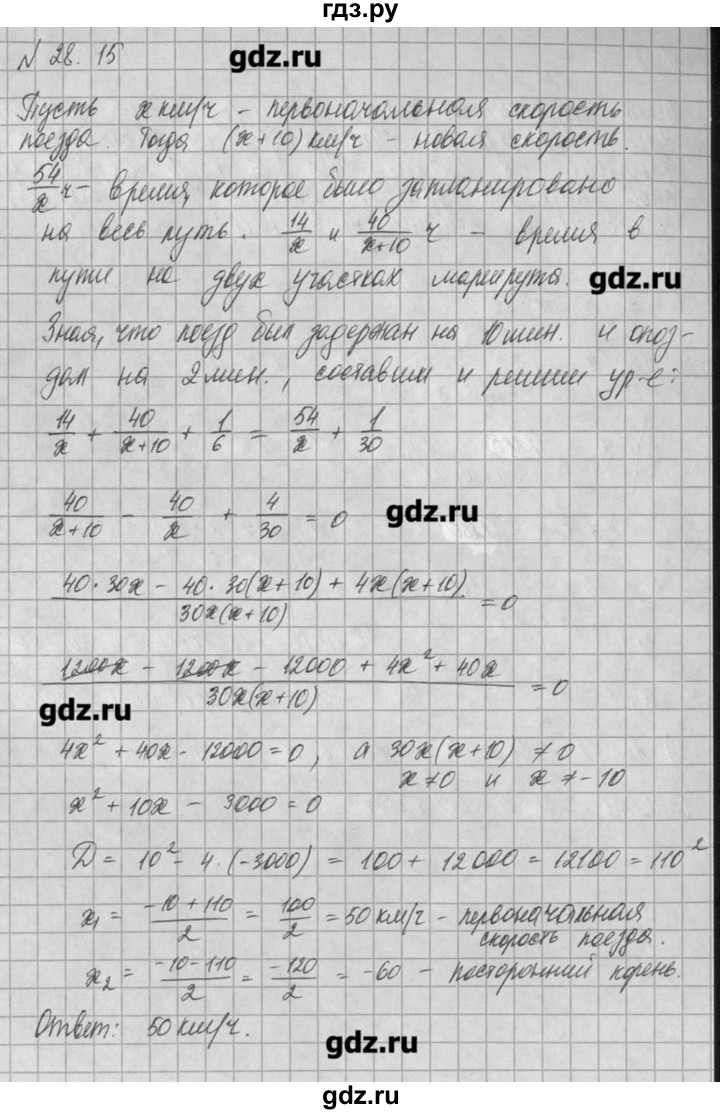 гдз.ру
№ 28.15
gdz.ru
Пусть x км/ч – первоначальная скорость
поезда. Тогда (x+10) км/ч – новая скорость.
54/x ч – время, которое было запланировано
на весь путь. 14/x и 40/(x+10) ч – время в
пути на двух участках маршрута.
gdz.ru
Зная, что поезд был задержан на 10 мин. и опоз-
дал на 2 мин., составим и решим ур-е:
14/x + 40/(x+10) + 1/6 = 54/x + 1/30
40/(x+10) - 40/x + 4/30 = 0
gdz.ru
(40·30x - 40·30(x+10) + 4x(x+10))/(30x(x+10)) = 0
(1200x - 1200x - 12000 + 4x² + 40x)/(30x(x+10)) = 0
gdz.ru
4x² + 40x - 12000 = 0, а 30x(x+10) ≠ 0
x ≠ 0 и x ≠ -10
x² + 10x - 3000 = 0
Д = 10² - 4·(-3000) = 100 + 12000 = 12100 = 110²
x₁ = (-10+110)/2 = 100/2 = 50 км/ч – первоначальная
скорость поезда.
x₂ = (-10-110)/2 = -120/2 = -60 – посторонний корень.
Ответ: 50 км/ч.
gdz.ru
gdz.ru